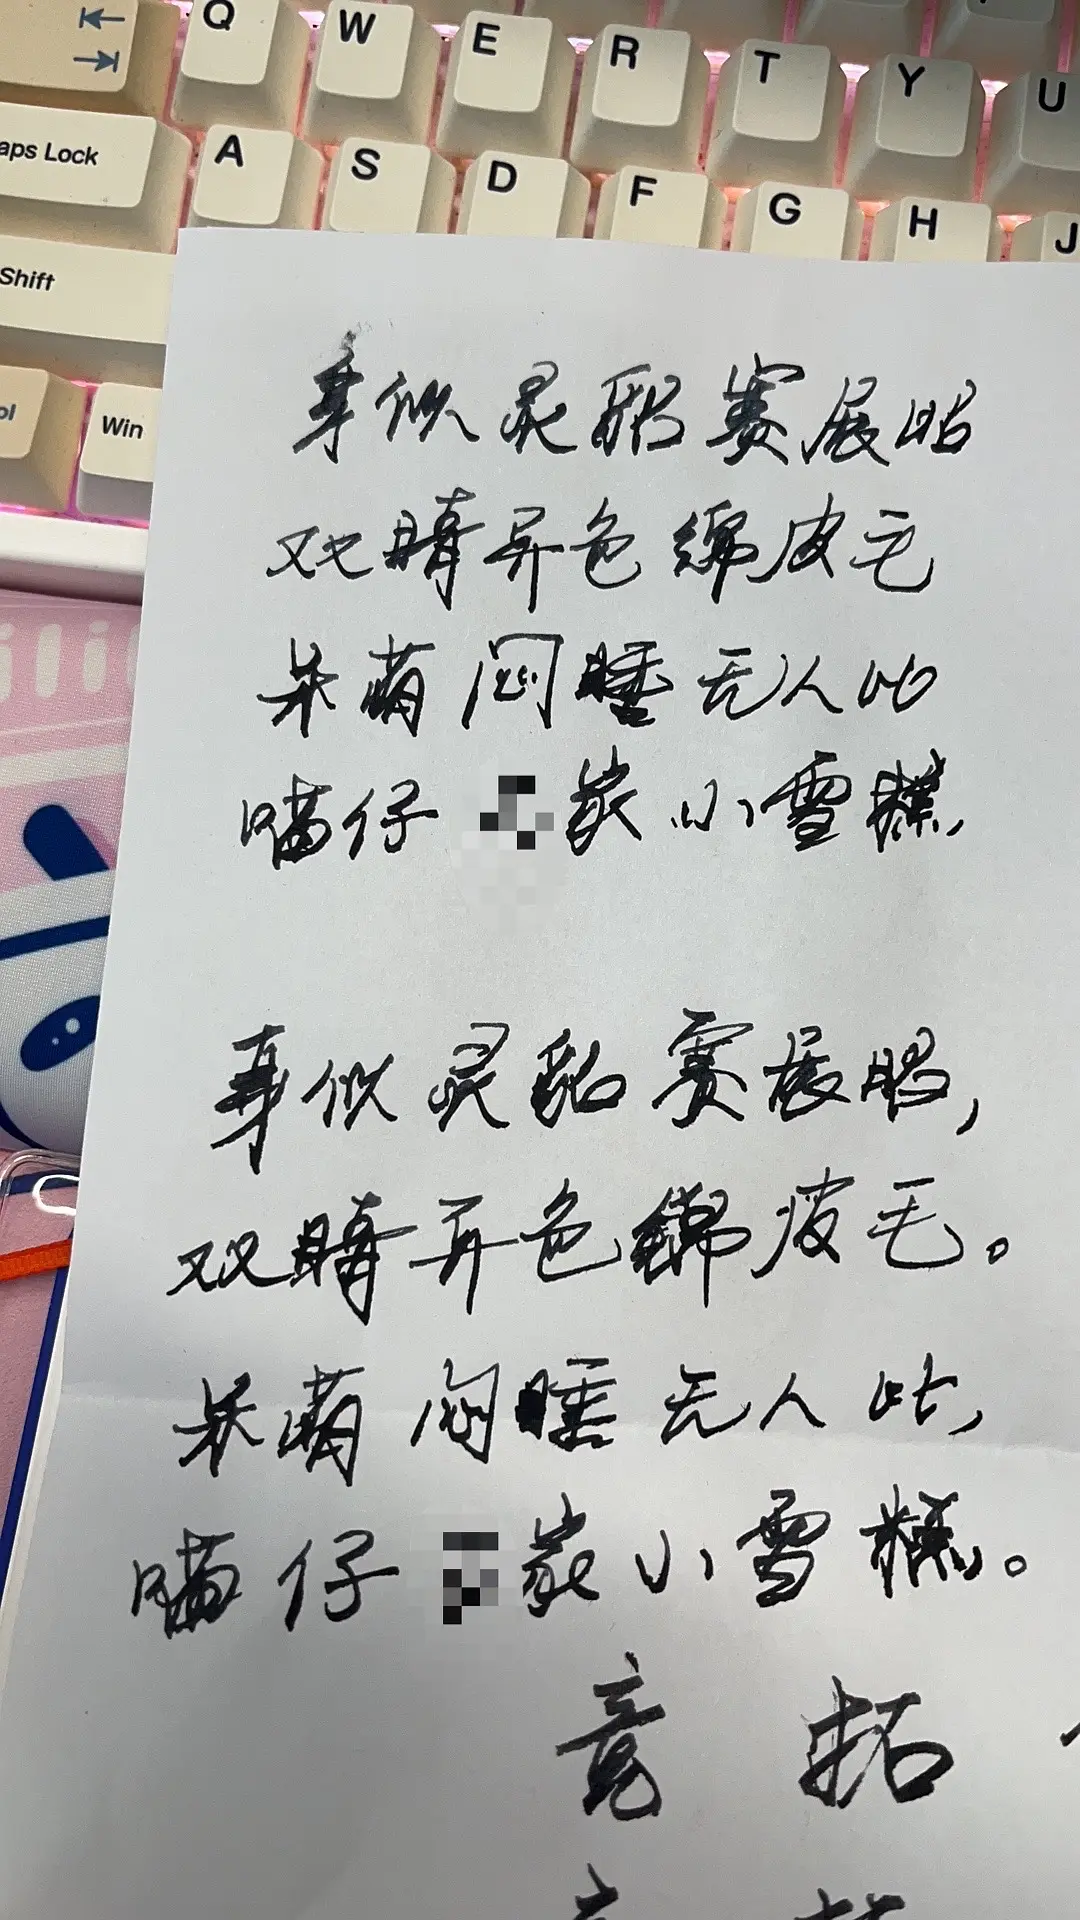 Q W E R T Y U
aps Lock A S D F G H J
Shift
ol Win
ili
身似灵貂赛展昭
双睛异色锦皮毛
呆萌闷睡无人比
喵仔 家小雪糕
身似灵貂赛展昭,
双睛异色锦皮毛。
呆萌闷睡无人比,
喵仔 家小雪糕。
竟 拓